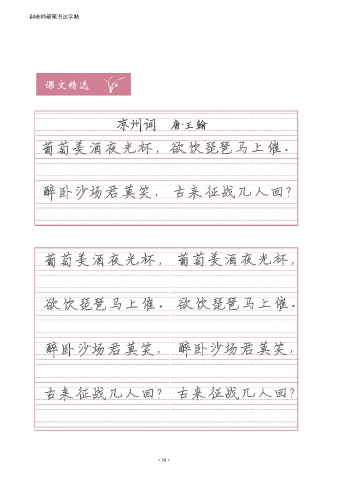 课文精选
凉州词 唐·王翰
葡萄美酒夜光杯，欲饮琵琶马上催。
醉卧沙场君莫笑，古来征战几人回？
葡萄美酒夜光杯，葡萄美酒夜光杯，
欲饮琵琶马上催。欲饮琵琶马上催。
醉卧沙场君莫笑，醉卧沙场君莫笑，
古来征战几人回？古来征战几人回？